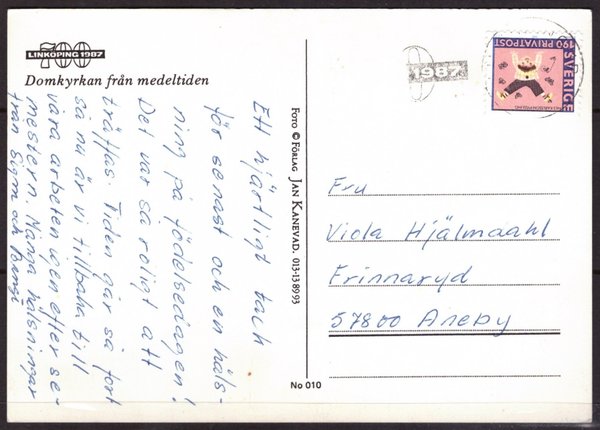 700
LINKÖPING 1987
Domkyrkan från medeltiden
Ett hjärtligt tack
för senast och en häls-
ning på födelsedagen!
Det var så roligt att
träffas. Tiden går så fort
så nu är vi tillbaka till
våra arbeten igen efter se-
mestern. Många hälsningar
från Sigrn och Bengt
FOTO © FÖRLAG JAN KANEVAD. 013-138993
No 010
1987
SVERIGE
190 PRIVATPOST
Fru
Viola Hjälmaahl
Frinnaryd
57800 Aneby